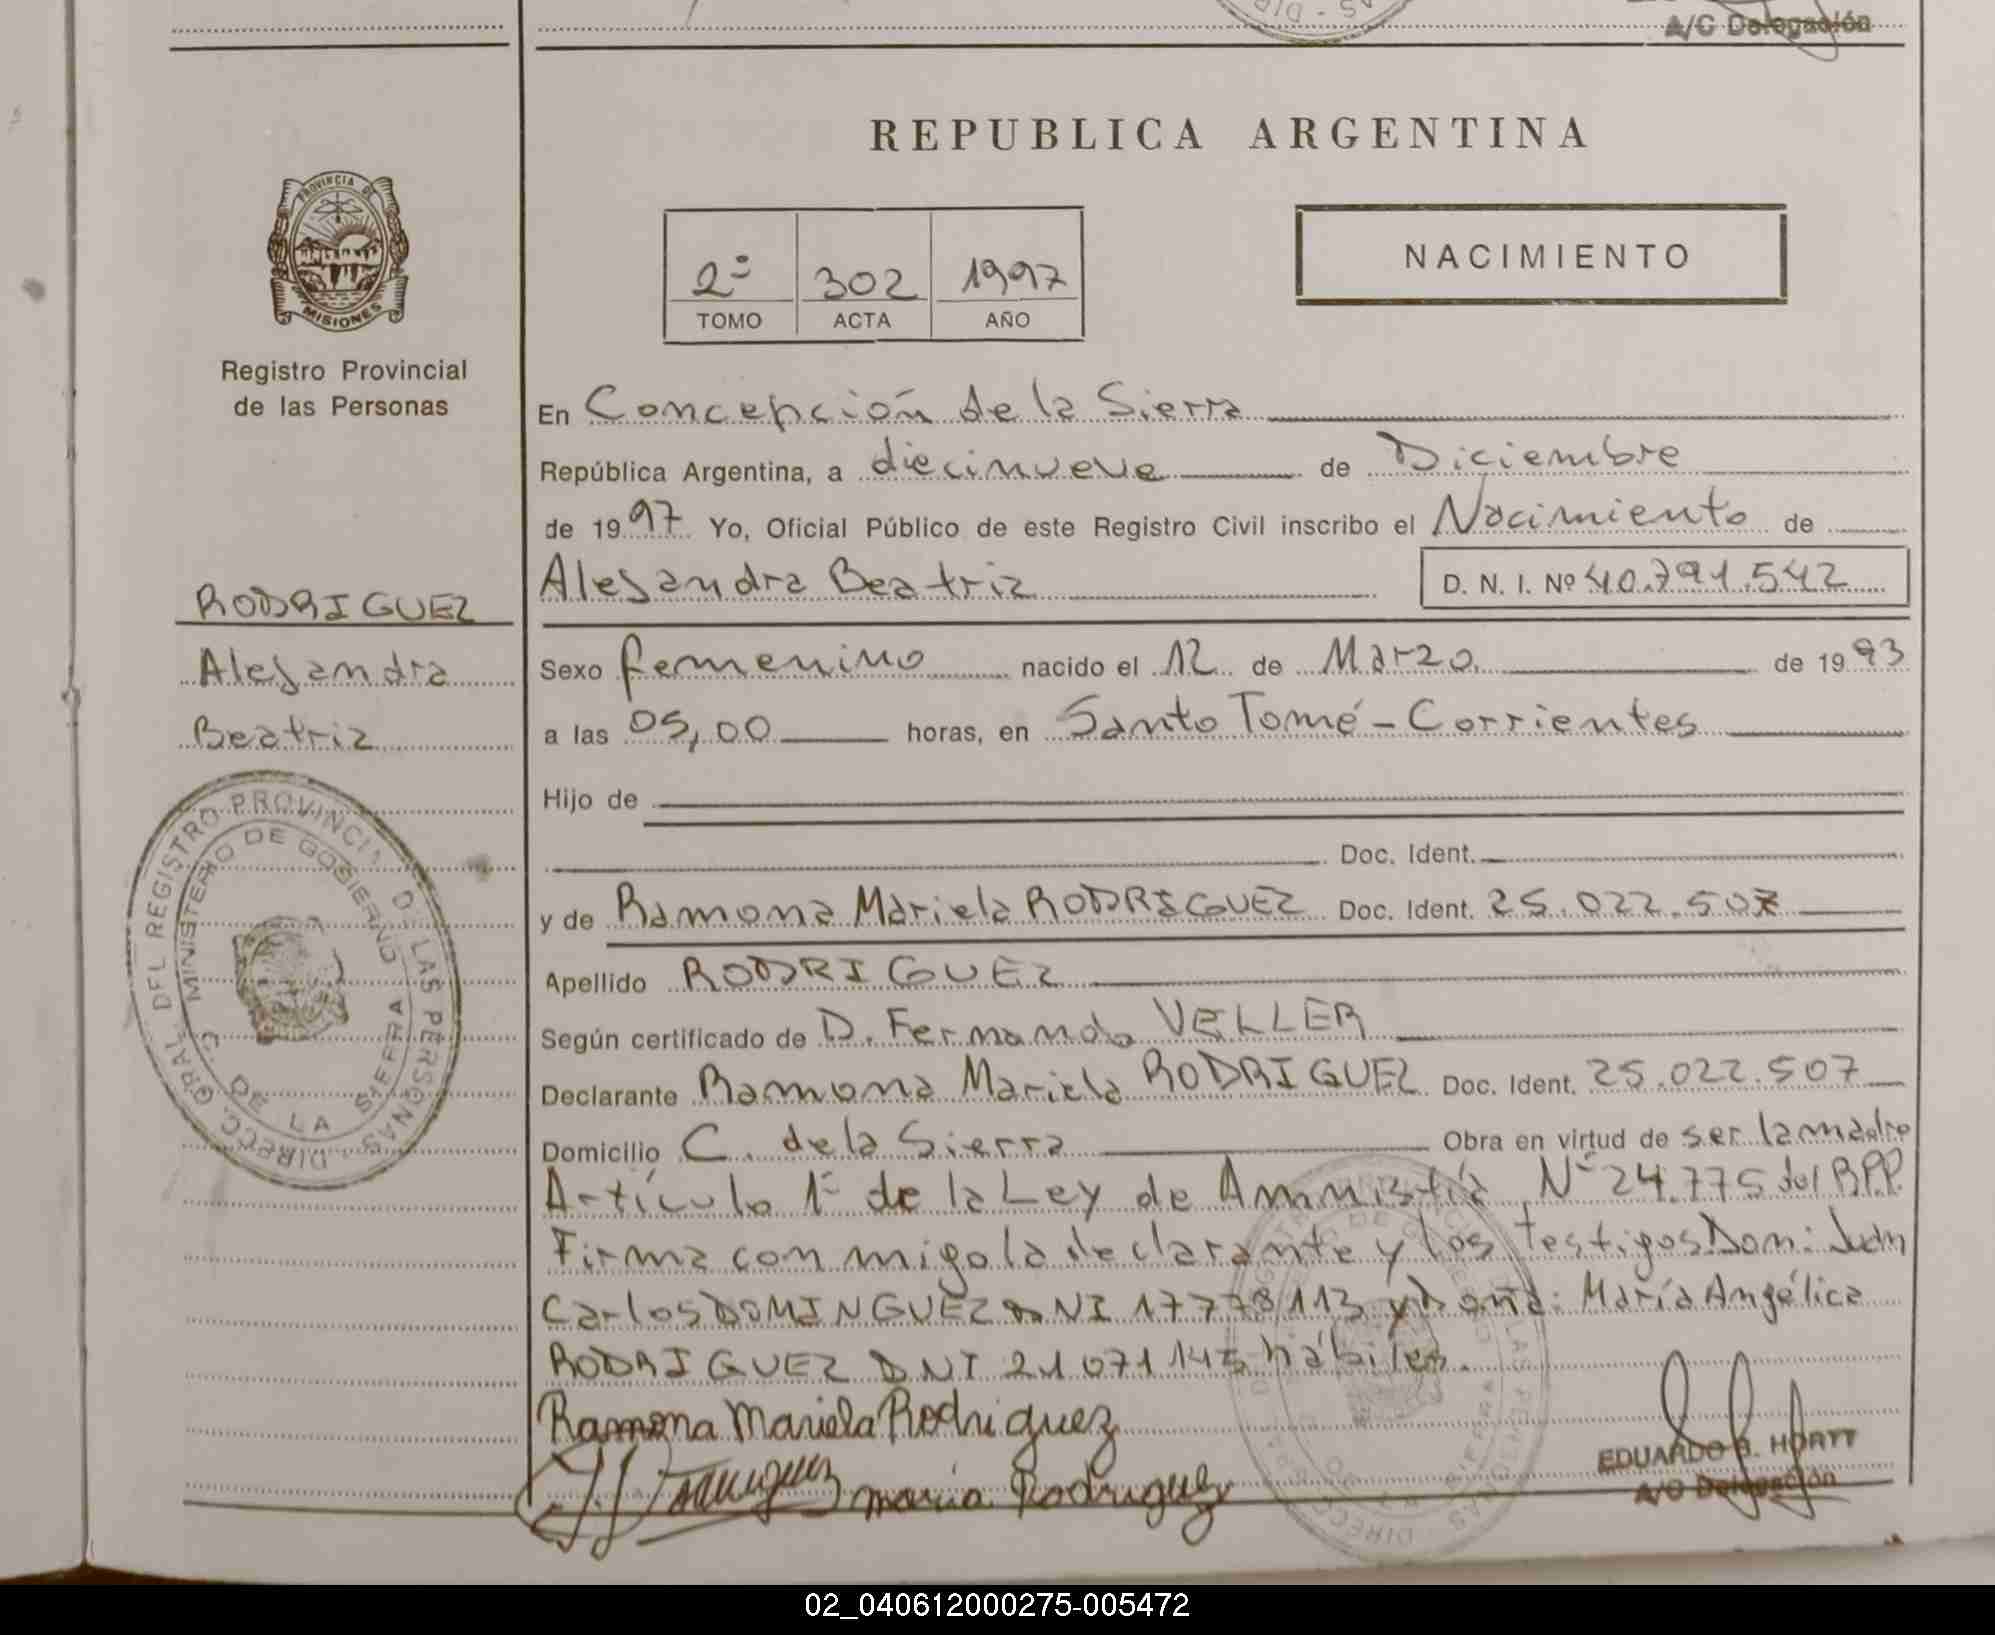 A/C Delegación
REPUBLICA ARGENTINA
PROVINCIA DE
MISIONES
Registro Provincial
de las Personas
2º 302 1997
TOMO ACTA AÑO
NACIMIENTO
En Concepción de la Sierra
República Argentina, a diecinueve de Diciembre
de 1997 Yo, Oficial Público de este Registro Civil inscribo el Nacimiento de
Alejandra Beatriz D. N. I. Nº 40.791.542
RODRIGUEZ
Alejandra
Beatriz
Sexo femenino nacido el 12 de Marzo de 1993
a las 05,00 horas, en Santo Tomé - Corrientes
Hijo de
Doc. Ident.
y de Ramona Mariela RODRIGUEZ Doc. Ident. 25.022.507
Apellido RODRIGUEZ
Según certificado de D. Fernando VELLER
Declarante Ramona Mariela RODRIGUEZ Doc. Ident. 25.022.507
Domicilio C. de la Sierra Obra en virtud de ser la madre
Artículo 1º de la Ley de Amnistía Nº 24.775 del R.P.P.
Firma conmigo la declarante y los testigos Don: Juan
Carlos DOMINGUEZ DNI 17778113 y Doña: María Angélica
RODRIGUEZ DNI 21071145 hábiles.
Ramona Mariela Rodriguez
maria Rodriguez
EDUARDO B. HORTT
A/C Delegación
DIRECC. GRAL. DEL REGISTRO PROVINCIAL D. LAS PERSONAS
MINISTERIO DE GOBIERNO
C. DE LA SIERRA
02_040612000275-005472